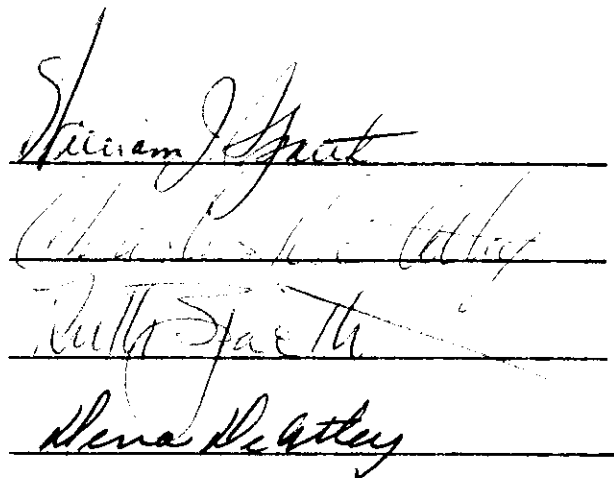 William J. Spaeth
Charles DeAtley
Ruth Spaeth
Dena DeAtley